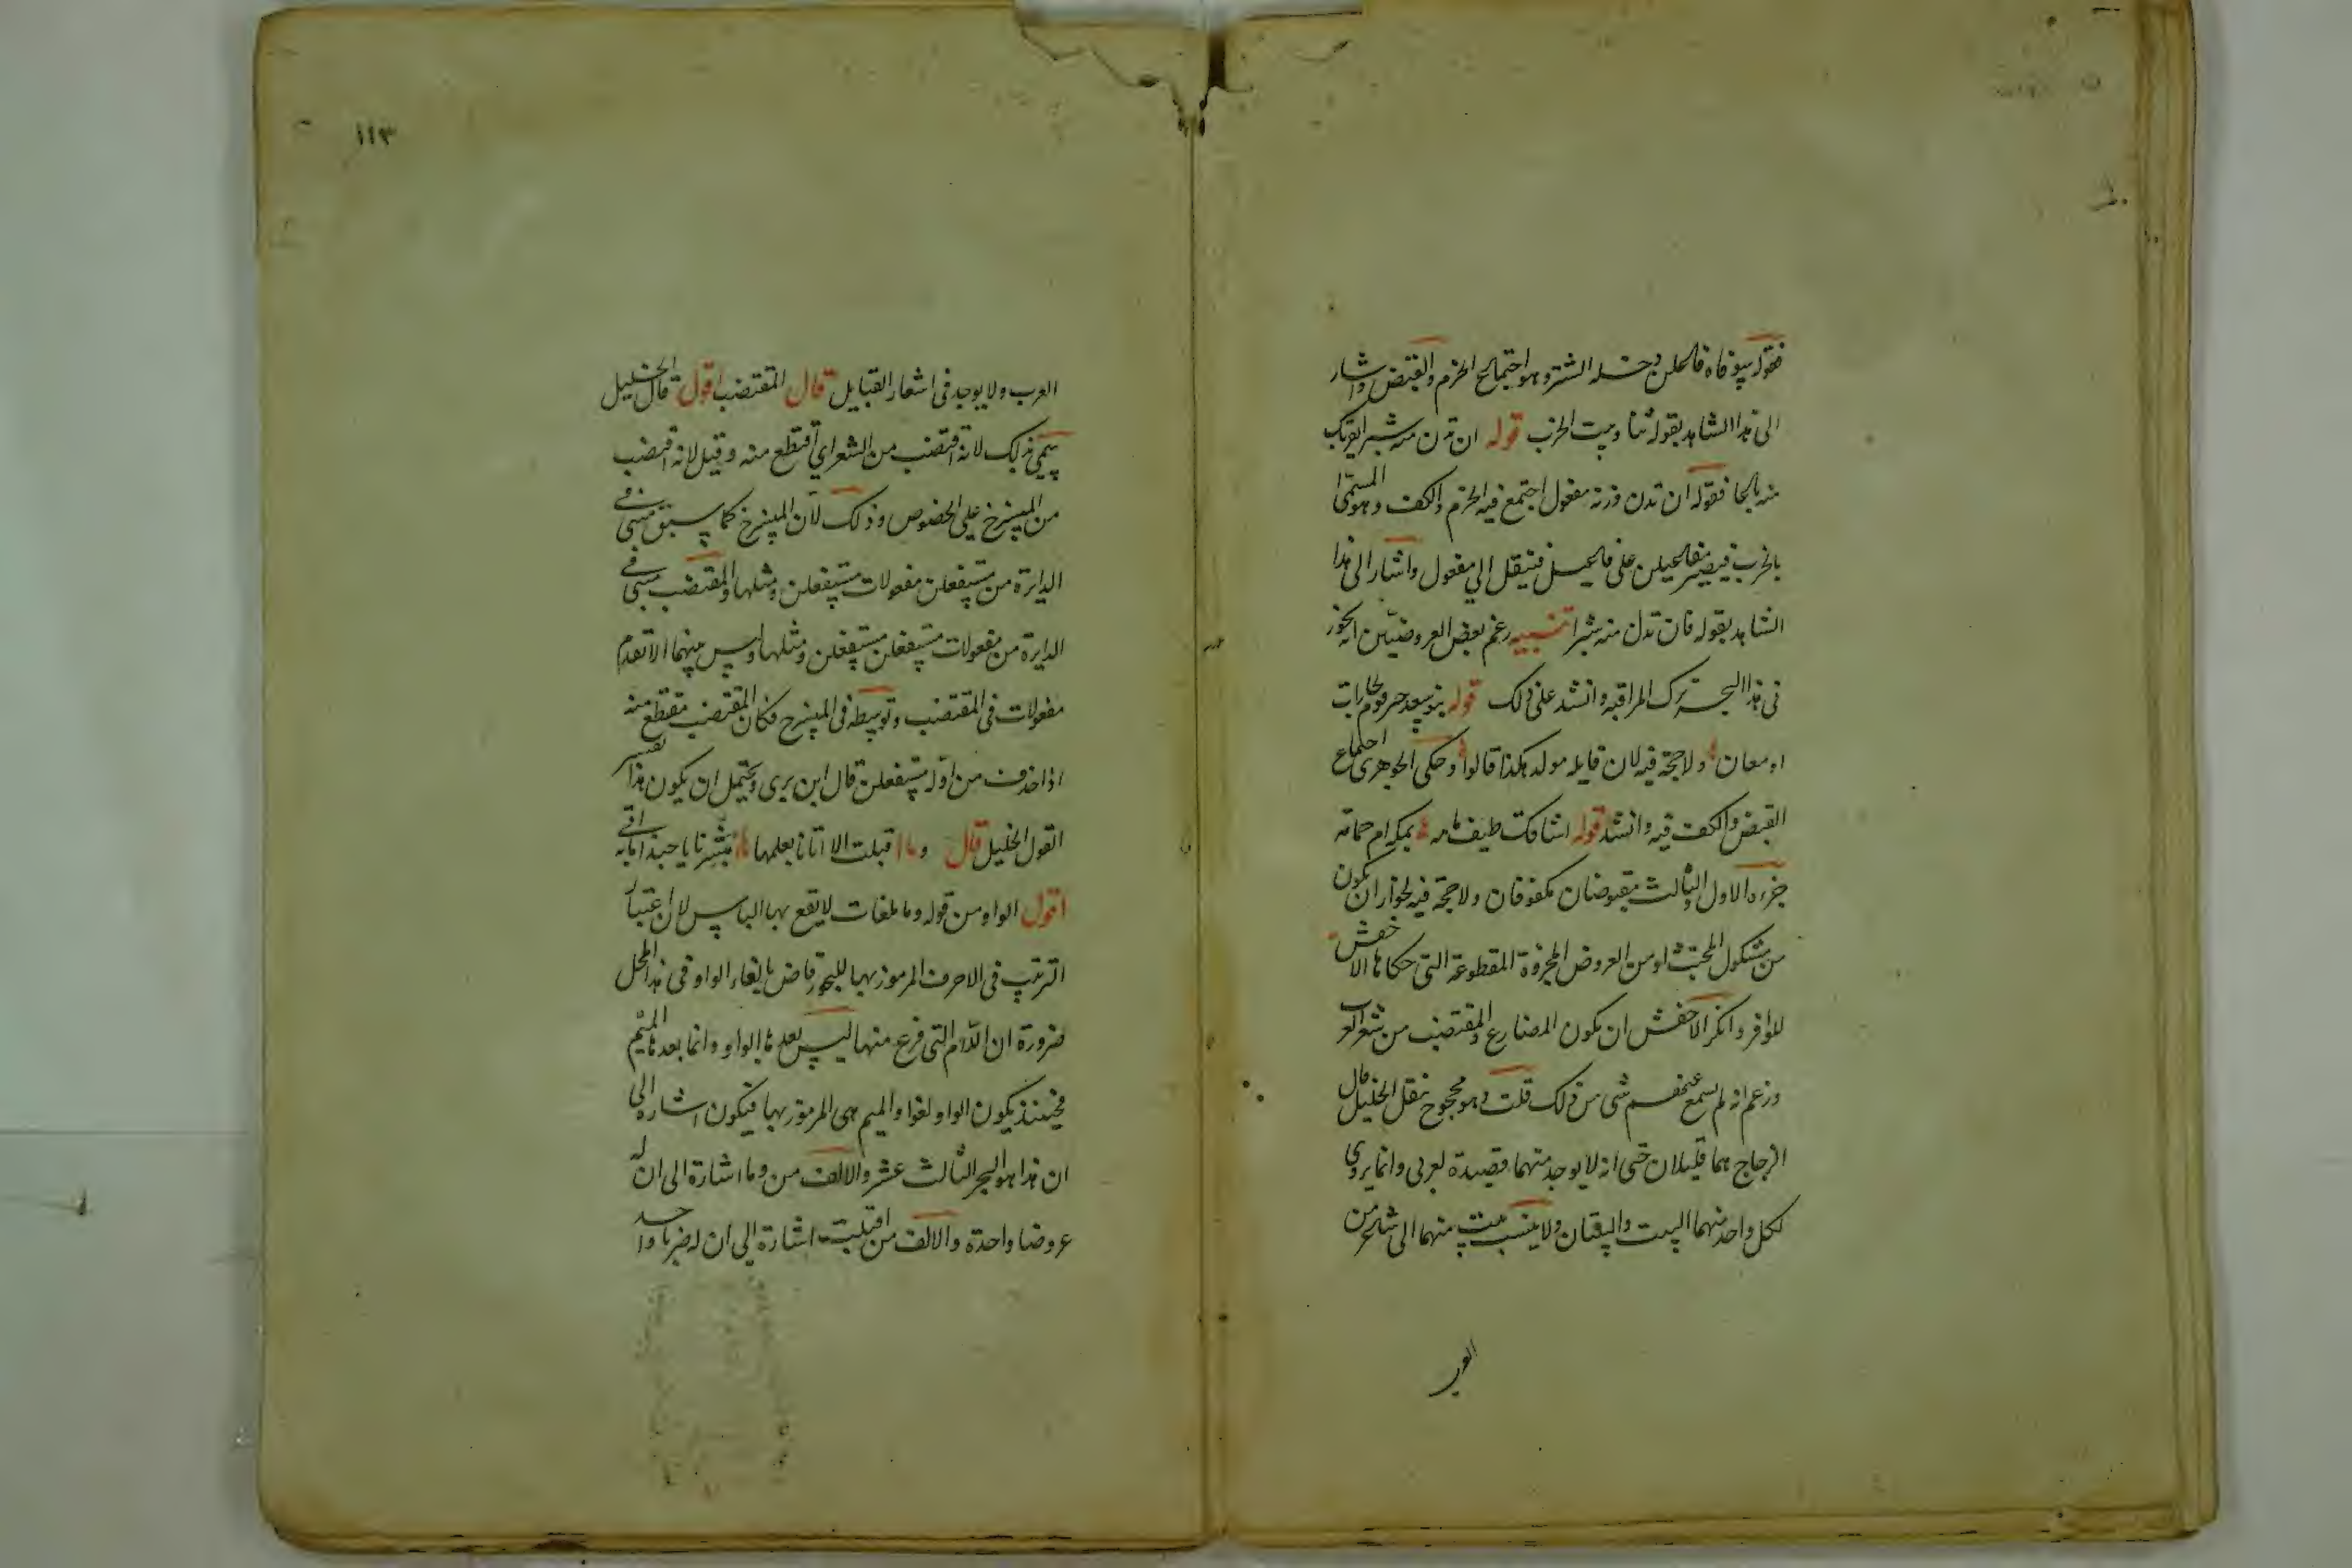 فقوله سوفاه فاعلن دخله الشتر وهو اجتماع الخرم والقبض واشار
الى هذا الشاهد بقوله ثنا وبيت الخرب قوله ان تدن منه شبرا يقربك
منه باعا فقوله ان تدن وزنه مفعول اجتمع فيه الخرم والكف وهو المسمى
بالخرب فيصير مفاعيلن على فاعيل فينقل الى مفعول واشار الى هذا
الشاهد بقوله فان تدن منه شبرا تنبيه زعم بعض العروضيين انه يجوز
في هذا البحر ترك المراقبة وانشد على ذلك قوله بنو سعد خير قوم لجارات
او معان ولا حجة فيه لان قايله مولد هكذا قالوا وحكى الجوهرى اجتماع
القبض والكف فيه وانشد قوله اشاقك طيف مامه بمكة ام حمامه
جزءه الاول والثالث مقبوضان مكفوفان ولا حجة فيه لجواز ان يكون
من مشكول المجتث او من العروض المجزوة المقطوعة التي حكاها الاخفش
للوافر وانكر الاخفش ان يكون المضارع والمقتضب من شعر العرب
وزعم انه لم يسمع منهم شى من ذلك قلت وهو محجوج بنقل الخليل قال
الزجاج هما قليلان حتى انه لا يوجد منهما قصيدة لعربى وانما يروى
لكل واحد منهما البيت والبيتان ولا ينسب بيت منهما الى شاعر من
العرب
١١٣
العرب ولا يوجد في اشعار القبايل قال المقتضب اقول قال الخليل
سمى بذلك لانه اقتضب من الشعر اي اقتطع منه وقيل لانه اقتضب
من المنسرح على الخصوص وذلك لان المنسرح كما سبق مبنى في
الدايرة من مستفعلن مفعولات مستفعلن ومثلها والمقتضب مبنى في
الدايرة من مفعولات مستفعلن مستفعلن ومثلها وليس بينهما الا تقدم
مفعولات في المقتضب وتوسطه في المنسرح فكان المقتضب مقتطع منه
اذا حذف من اوله مستفعلن قال ابن برى ويحتمل ان يكون هذا تفسير
القول الخليل قال وما اقبلت الا اتانا بعلمها مبشرنا يا حبذا ما به اتى
اقول الواو من قوله وما ملغات لا يقع بها الباس لان اعتبار
الترتيب في الاحرف المرموز بها للبحور قاض بالغاء الواو في هذا المحل
ضرورة ان اللام التي فرغ منها ليس بعدها الواو وانما بعدها الميم
فحينئذ يكون الواو لغوا والميم هى المرموز بها فيكون اشارة الى
ان هذا هو البحر الثالث عشر والالف من وما اشارة الى ان له
عروضا واحدة والالف من اقبلت اشارة الى ان له ضربا واحد